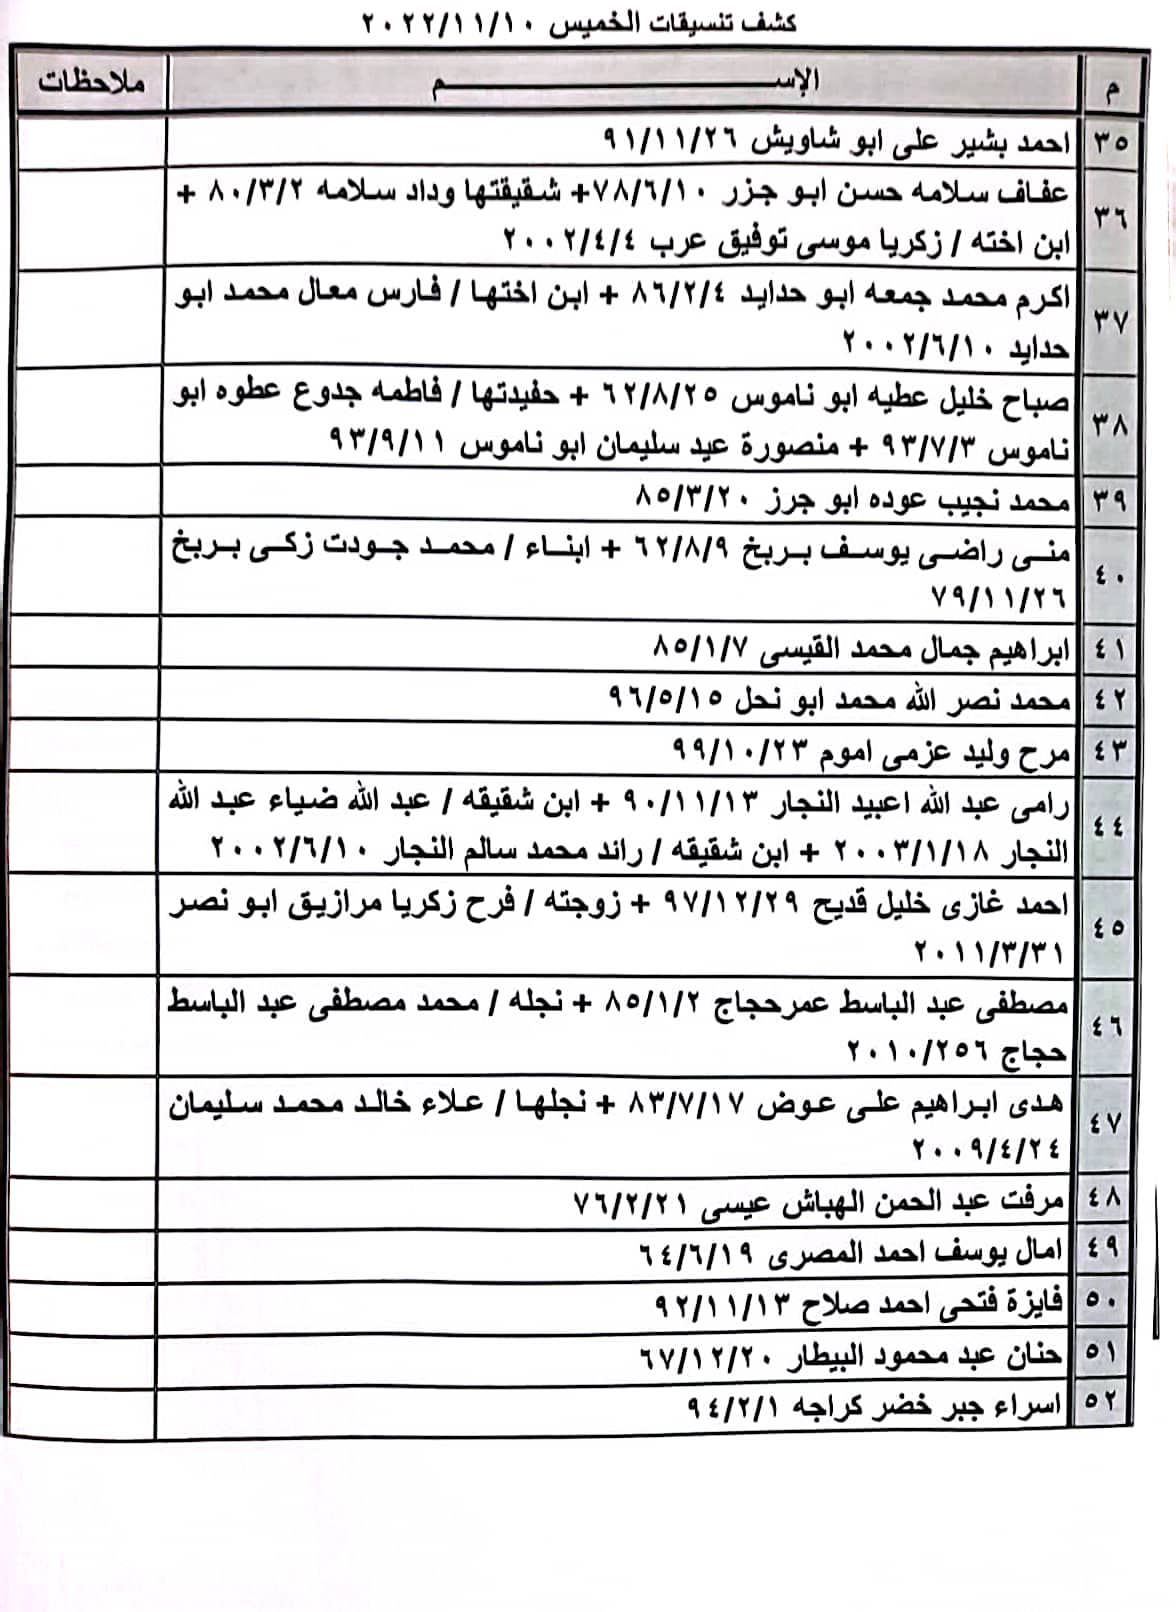 كشف تنسيقات الخميس ٢٠٢٢/١١/١٠
م الإســـــــــــم ملاحظات
٣٥ احمد بشير على ابو شاويش ٩١/١١/٢٦
٣٦ عفاف سلامه حسن ابو جزر ٧٨/٦/١٠+ شقيقتها وداد سلامه ٨٠/٣/٢ +
ابن اخته / زكريا موسى توفيق عرب ٢٠٠٢/٤/٤
٣٧ اكرم محمد جمعه ابو حدايد ٨٦/٢/٤ + ابن اختها / فارس معال محمد ابو
حدايد ٢٠٠٢/٦/١٠
٣٨ صباح خليل عطيه ابو ناموس ٦٢/٨/٢٥ + حفيدتها / فاطمه جدوع عطوه ابو
ناموس ٩٣/٧/٣ + منصورة عيد سليمان ابو ناموس ٩٣/٩/١١
٣٩ محمد نجيب عوده ابو جرز ٨٥/٣/٢٠
٤٠ منى راضى يوسف بربخ ٦٢/٨/٩ + ابناء / محمد جودت زكى بربخ
٧٩/١١/٢٦
٤١ ابراهيم جمال محمد القيسى ٨٥/١/٧
٤٢ محمد نصر الله محمد ابو نحل ٩٦/٥/١٥
٤٣ مرح وليد عزمى اموم ٩٩/١٠/٢٣
٤٤ رامى عبد الله اعبيد النجار ٩٠/١١/١٣ + ابن شقيقه / عبد الله ضياء عبد الله
النجار ٢٠٠٣/١/١٨ + ابن شقيقه / رائد محمد سالم النجار ٢٠٠٢/٦/١٠
٤٥ احمد غازى خليل قديح ٩٧/١٢/٢٩ + زوجته / فرح زكريا مرازيق ابو نصر
٢٠١١/٣/٣١
٤٦ مصطفى عبد الباسط عمرحجاج ٨٥/١/٢ + نجله / محمد مصطفى عبد الباسط
حجاج ٢٠١٠/٢٥٦
٤٧ هدى ابراهيم على عوض ٨٣/٧/١٧ + نجلها / علاء خالد محمد سليمان
٢٠٠٩/٤/٢٤
٤٨ مرفت عبد الحمن الهباش عيسى ٧٦/٢/٢١
٤٩ امال يوسف احمد المصرى ٦٤/٦/١٩
٥٠ فايزة فتحى احمد صلاح ٩٢/١١/١٣
٥١ حنان عبد محمود البيطار ٦٧/١٢/٢٠
٥٢ اسراء جبر خضر كراجه ٩٤/٢/١